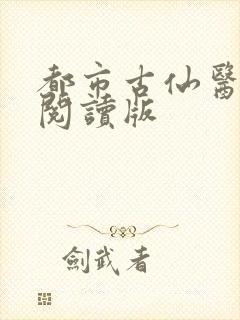 都市古仙醫
閱讀版
劍武者